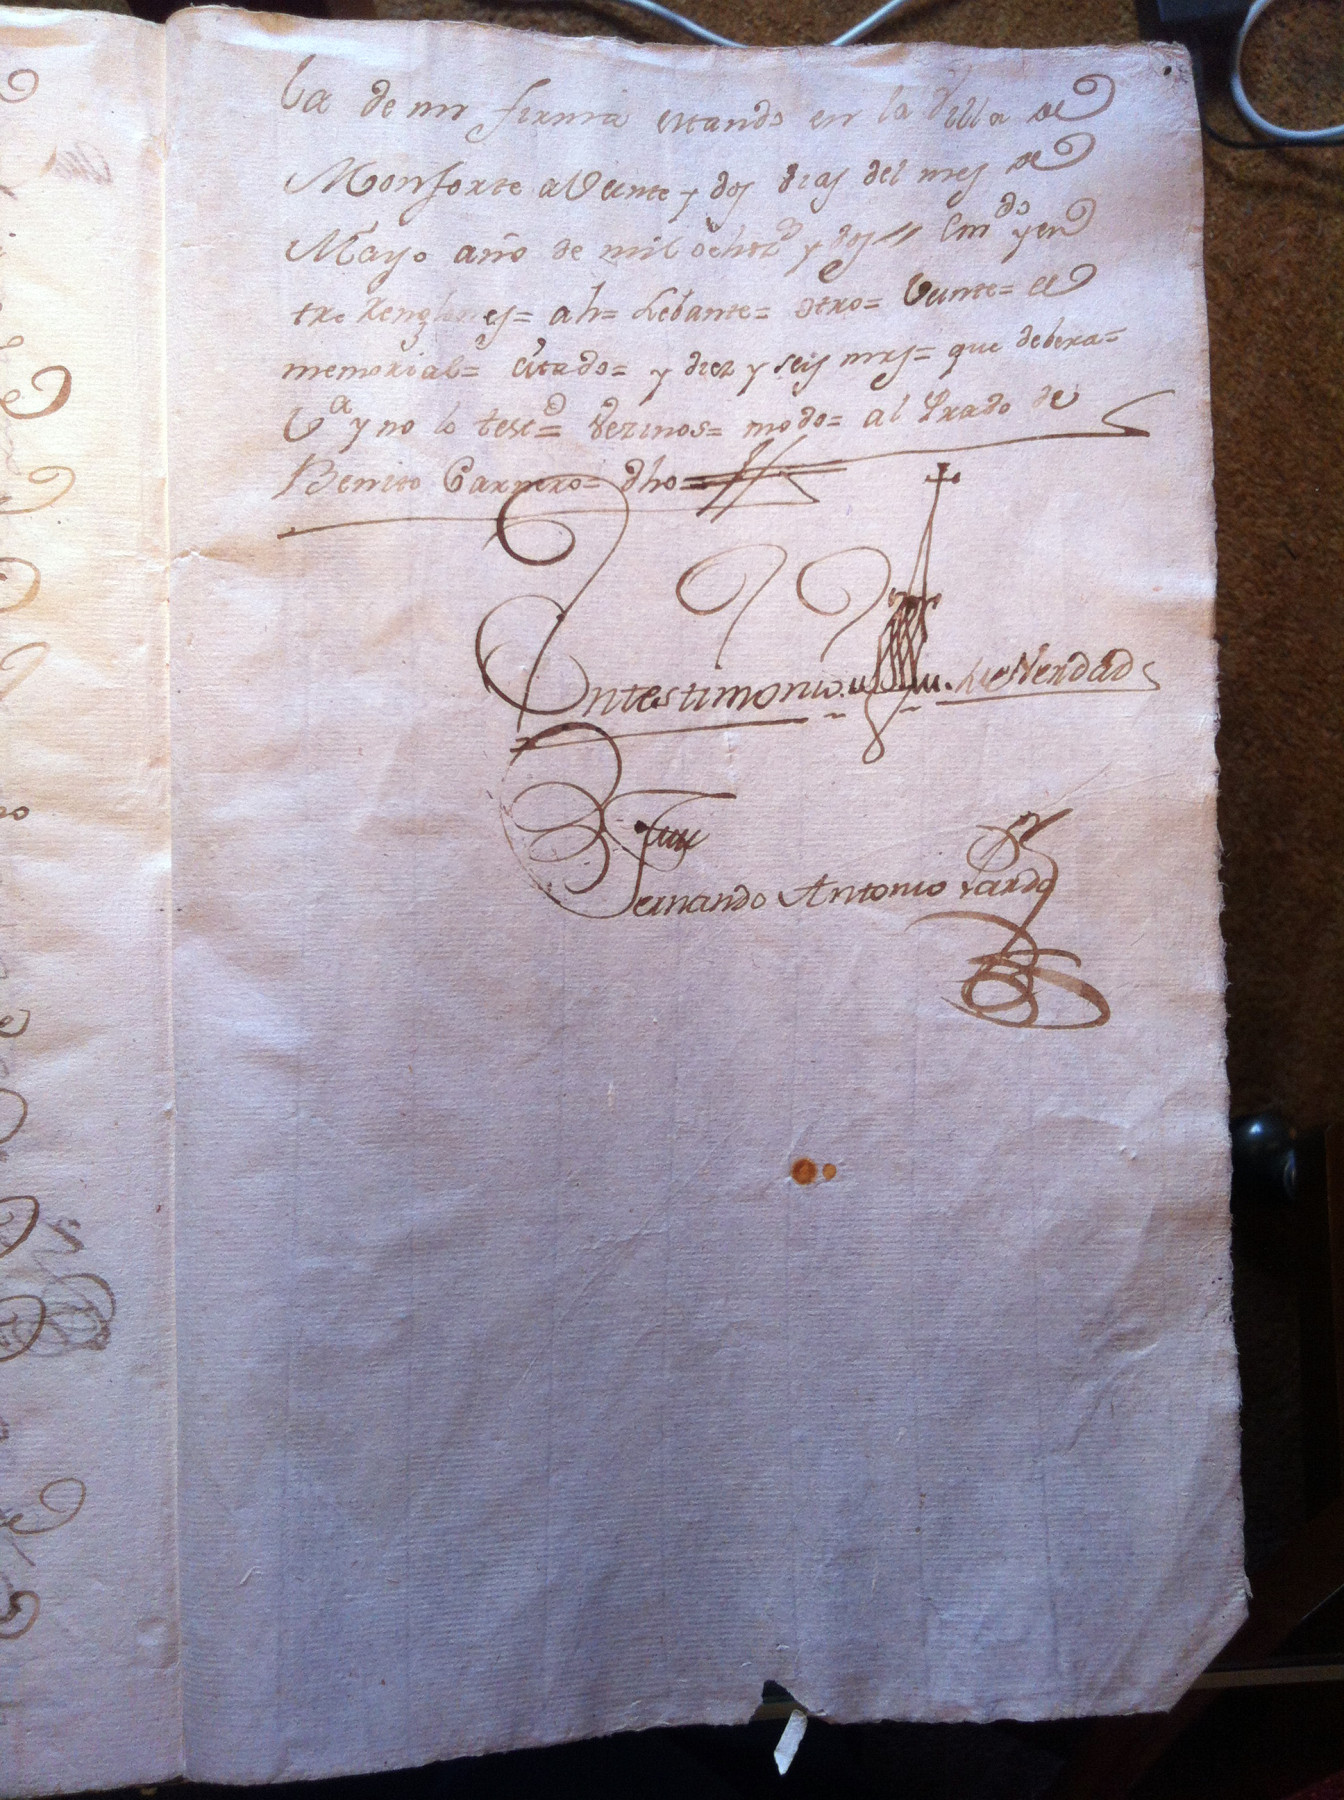 ba de mi firma estando en la Villa de
Monforte a Veinte y dos dias del mes de
Mayo año de mil ochoz.s y dos // Em.do y en
tre Renglones= ah= Lebante= otro= Veinte= el
memorial= Citado= y diez y seis mrs= que debera=
V.a y no lo test.do= Vezinos= modo= al Prado de
Benito Carnero= dho=
Entestimonio de Verdad
Fernando Antonio Pardo